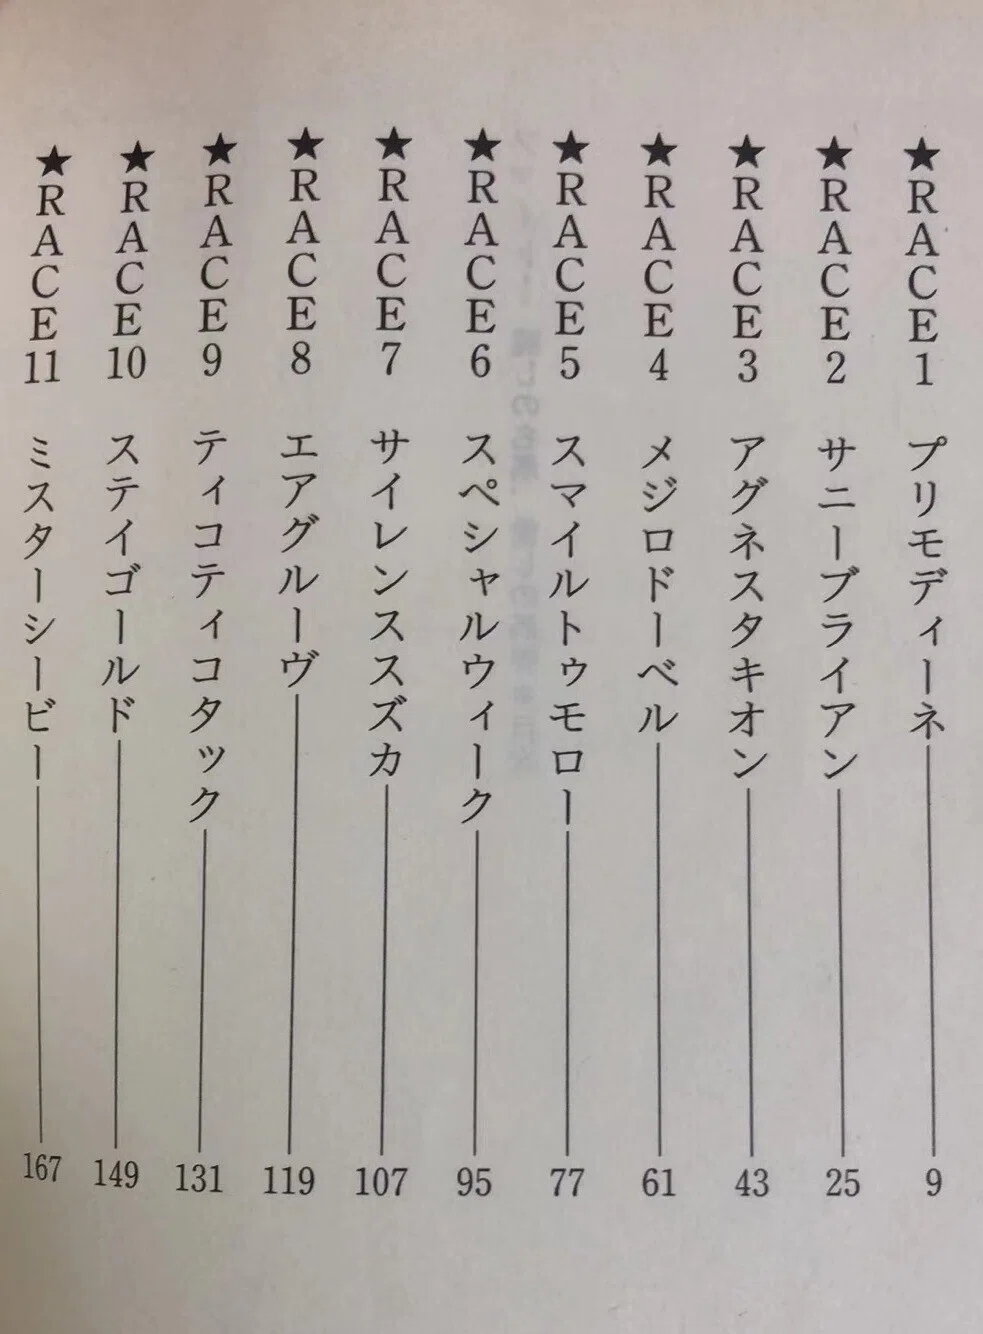 ★RACE1 プリモディーネ 9
★RACE2 サニーブライアン 25
★RACE3 アグネスタキオン 43
★RACE4 メジロドーベル 61
★RACE5 スマイルトゥモロー 77
★RACE6 スペシャルウィーク 95
★RACE7 サイレンススズカ 107
★RACE8 エアグルーヴ 119
★RACE9 ティコティコタック 131
★RACE10 ステイゴールド 149
★RACE11 ミスターシービー 167